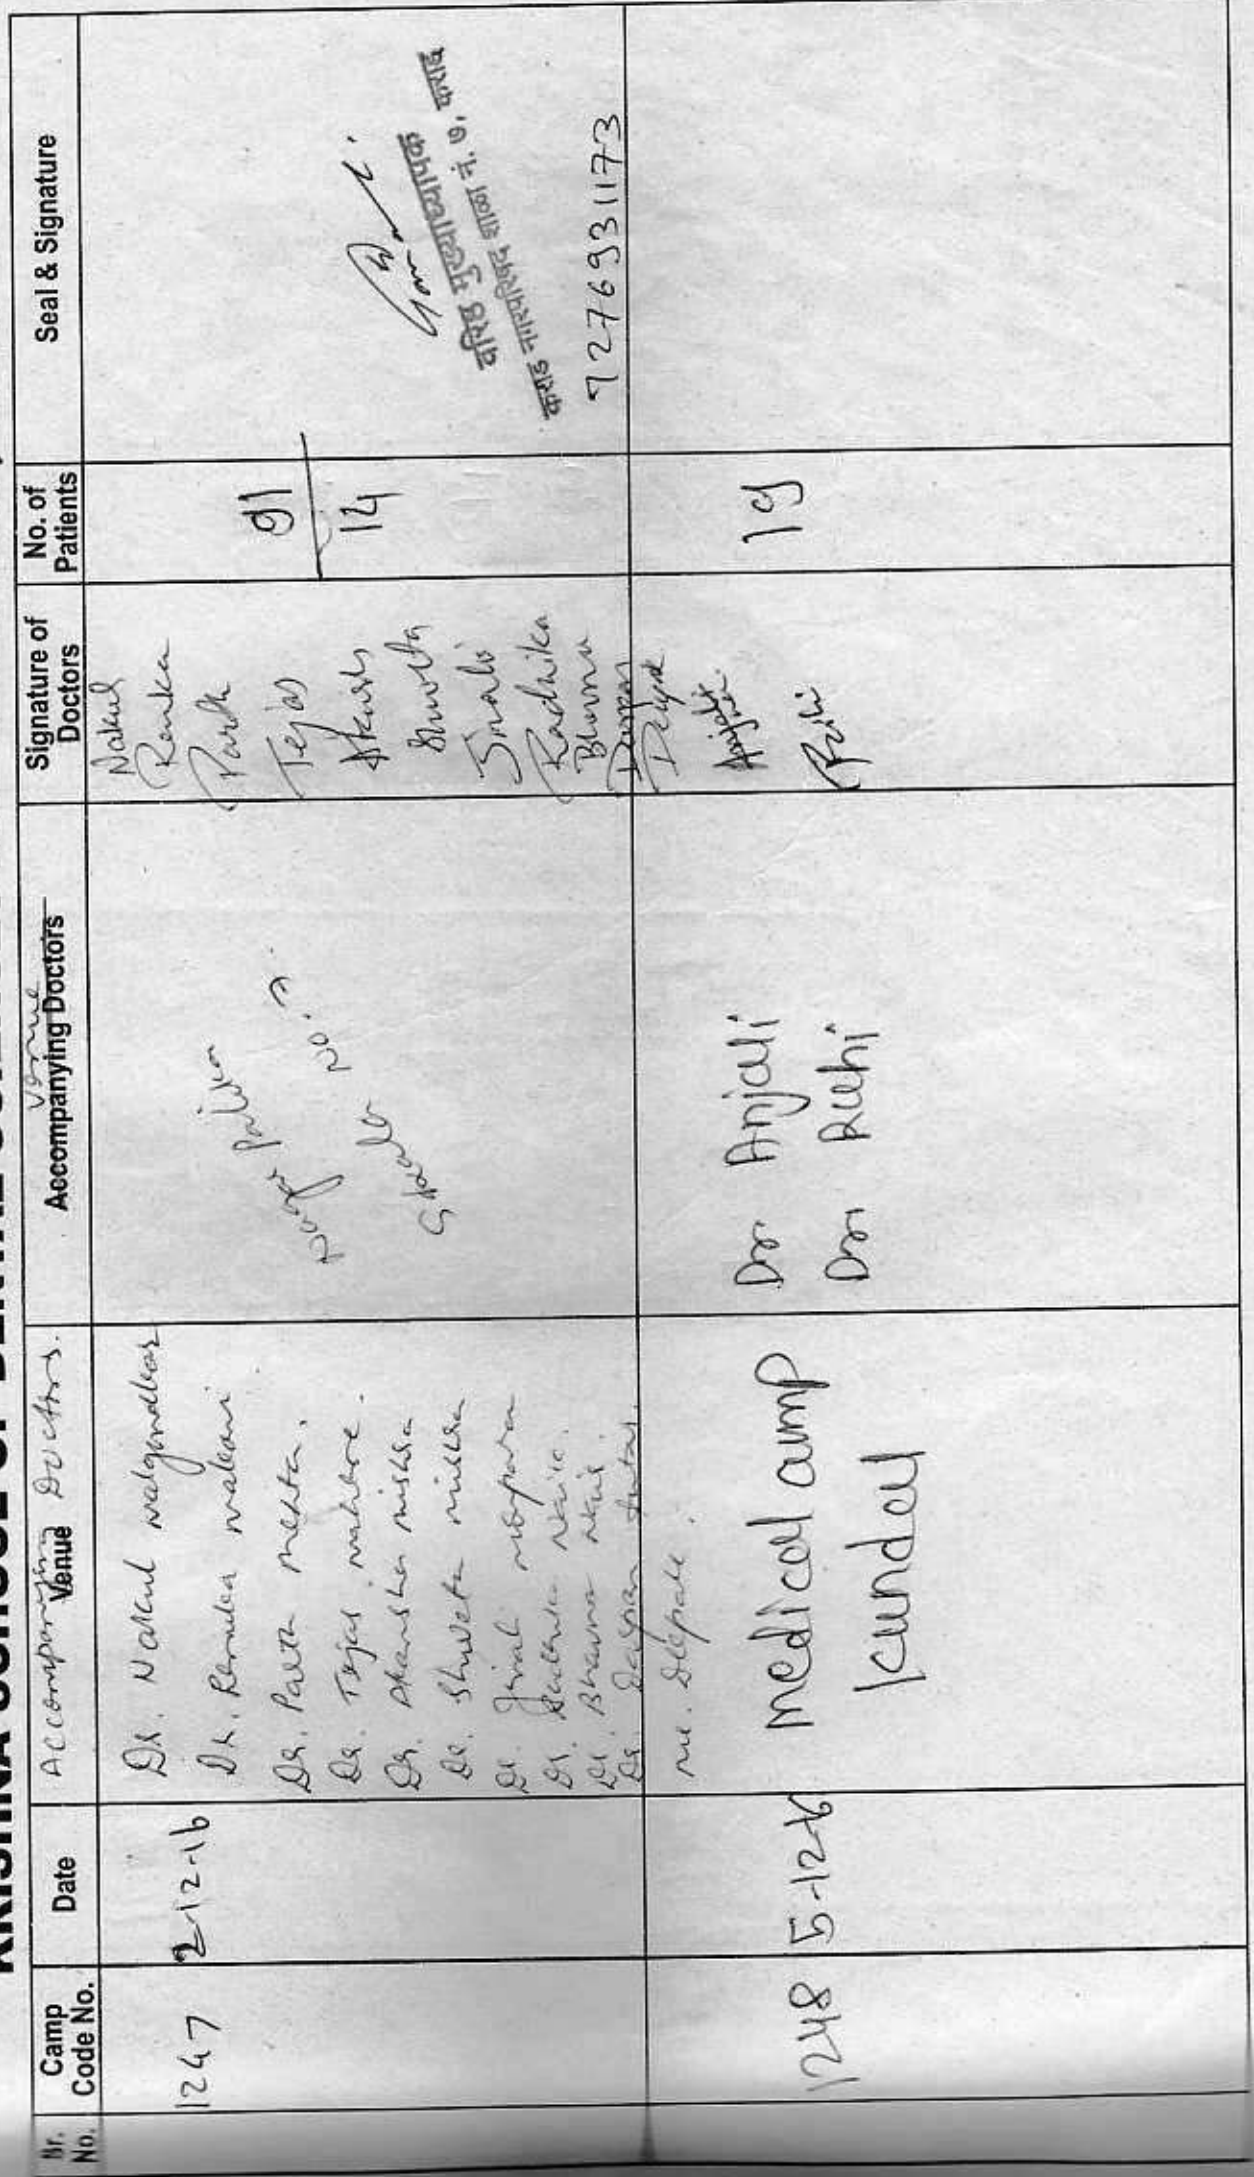 Nr. No.
Camp Code No.
Date
Accompanying Doctors.
Venue
Venue
Accompanying Doctors
Signature of Doctors
No. of Patients
Seal & Signature
1247
2-12-16
Dr. Nakul
Dr. Renuka malani
Dr. Parth Mehta.
Dr. Tejas
Dr. Akansha Mishra
Dr. Shweta Mishra
Dr. Jinal
Dr. Radhika
Dr. Bhavna
Dr. Darpan
Nagar Palika
Shala No. 7.
Nakul
Parth
Tejas
Akansh
Shweta
Jinali
Radhika
Bhavna
Darpan
91
14
वरिष्ठ मुख्याध्यापक
कराड नगरपरिषद शाळा नं. ७, कराड
7276931173
Deepak
1248
5-12-16
medical camp
kundal
Dr Anjali
Dr Ruhi
Anjali
Ruhi
19